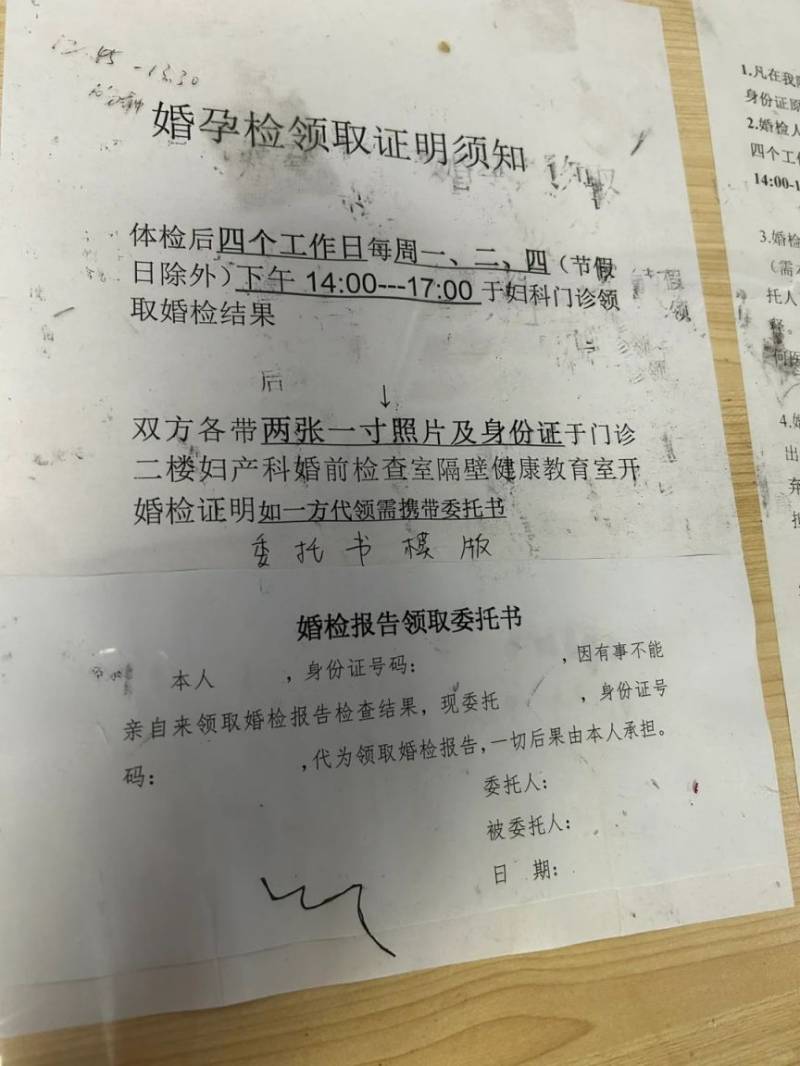 婚孕检领取证明须知
体检后四个工作日每周一、二、四（节假
日除外）下午 14:00---17:00 于妇科门诊领
取婚检结果
后
↓
双方各带两张一寸照片及身份证于门诊
二楼妇产科婚前检查室隔壁健康教育室开
婚检证明如一方代领需携带委托书
委托书模版
婚检报告领取委托书
本人          ，身份证号码：          ，因有事不能
亲自来领取婚检报告检查结果，现委托          ，身份证号
码：          ，代为领取婚检报告，一切后果由本人承担。
委托人：
被委托人：
日  期：
1.凡在我
身份证原
2.婚检人
四个工作
14:00-1
3.婚检
（需
托人
4.婚
出
弃